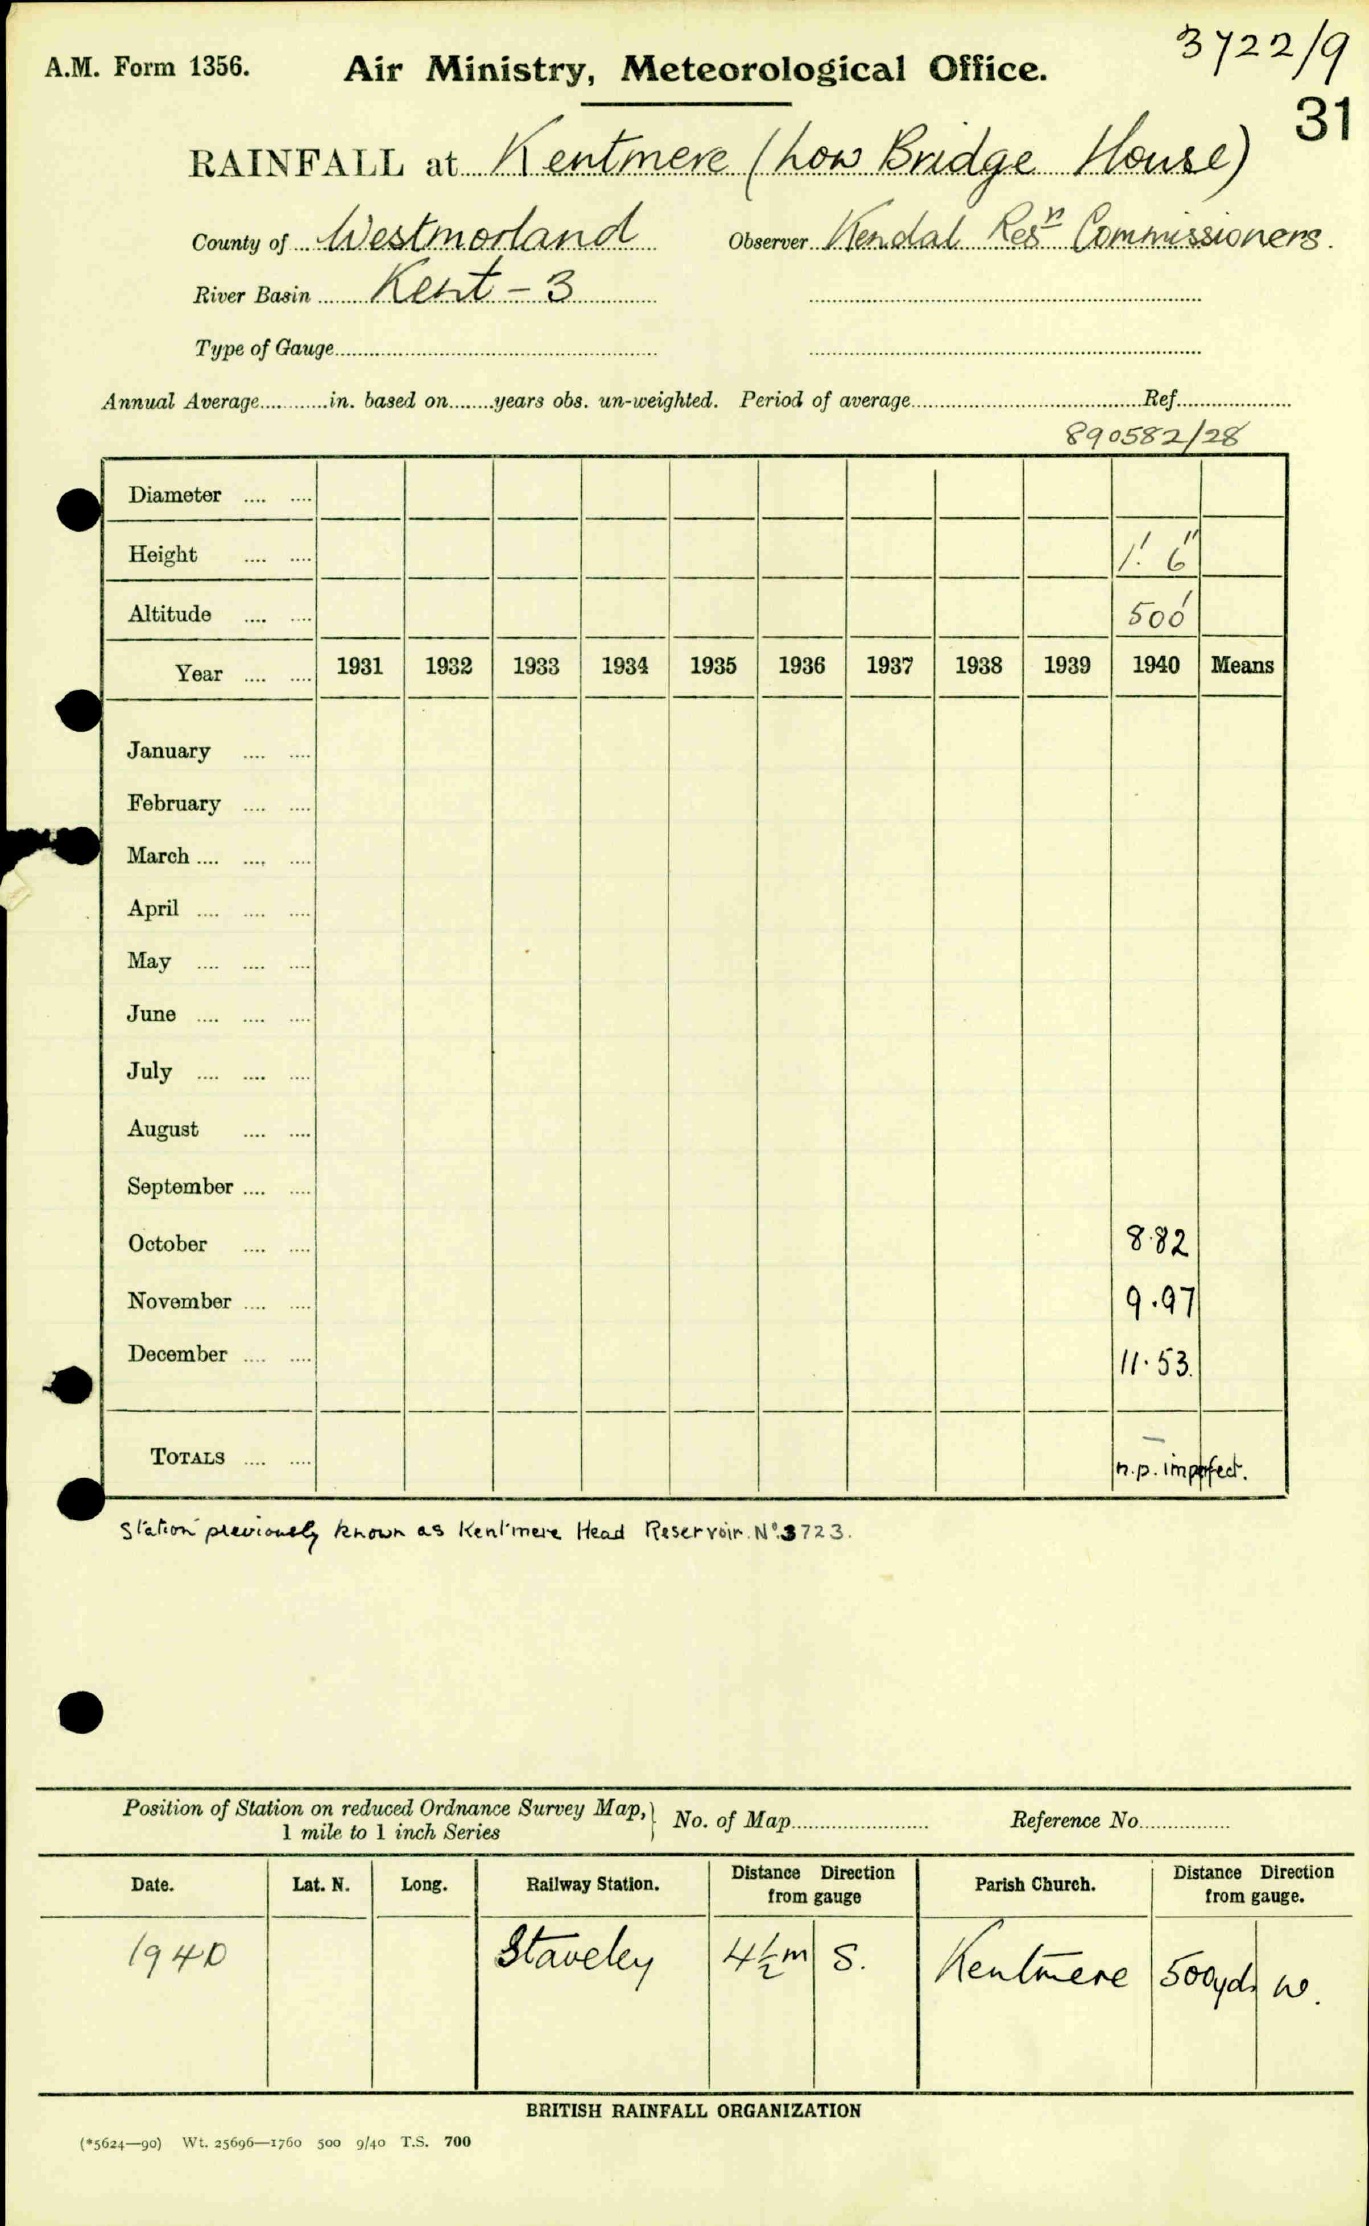 3722/9
A.M. Form 1356. Air Ministry, Meteorological Office.
31
RAINFALL at Kentmere (Low Bridge House)
County of Westmorland Observer Kendal Resn Commissioners.
River Basin Kent - 3
Type of Gauge
Annual Average in. based on years obs. un-weighted. Period of average Ref.
890582/28
Diameter
Height 1'. 6"
Altitude 500'
Year 1931 1932 1933 1934 1935 1936 1937 1938 1939 1940 Means
January
February
March
April
May
June
July
August
September
October 8.82
November 9.97
December 11.53.
TOTALS –
n.p. imperfect.
Station previously known as Kentmere Head Reservoir. No. 3723.
Position of Station on reduced Ordnance Survey Map, } No. of Map Reference No.
1 mile to 1 inch Series
Date. Lat. N. Long. Railway Station. Distance Direction from gauge Parish Church. Distance Direction from gauge.
1940 Staveley 4½m S. Kentmere 500yds W.
BRITISH RAINFALL ORGANIZATION
(*5624—90) Wt. 25696—1760 500 9/40 T.S. 700